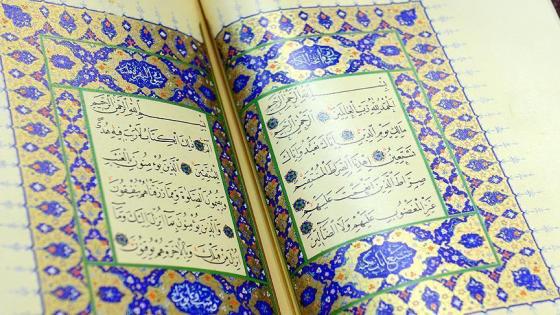 بِسْمِ اللهِ الرَّحْمٰنِ الرَّحِيمِ
اَلْحَمْدُ لِلهِ رَبِّ الْعَالَمِينَ الرَّحْمٰنِ الرَّحِيمِ
مَالِكِ يَوْمِ الدِّينِ اِيَّاكَ نَعْبُدُ وَاِيَّاكَ
نَسْتَعِينُ اِهْدِنَا الصِّرَاطَ الْمُسْتَقِيمَ
صِرَاطَ الَّذِينَ اَنْعَمْتَ عَلَيْهِمْ
غَيْرِ الْمَغْضُوبِ عَلَيْهِمْ وَلَا الضَّالِّينَ
بِسْمِ اللهِ الرَّحْمٰنِ الرَّحِيمِ
الم ذٰلِكَ الْكِتَابُ لَا رَيْبَ فِيهِ هُدًى
لِلْمُتَّقِينَ الَّذِينَ يُؤْمِنُونَ بِالْغَيْبِ
وَيُقِيمُونَ الصَّلٰوةَ وَمِمَّا رَزَقْنَاهُمْ يُنْفِقُونَ
وَالَّذِينَ يُؤْمِنُونَ بِمَا اُنْزِلَ اِلَيْكَ وَمَا
اُنْزِلَ مِنْ قَبْلِكَ وَبِالْاٰخِرَةِ هُمْ يُوقِنُونَ